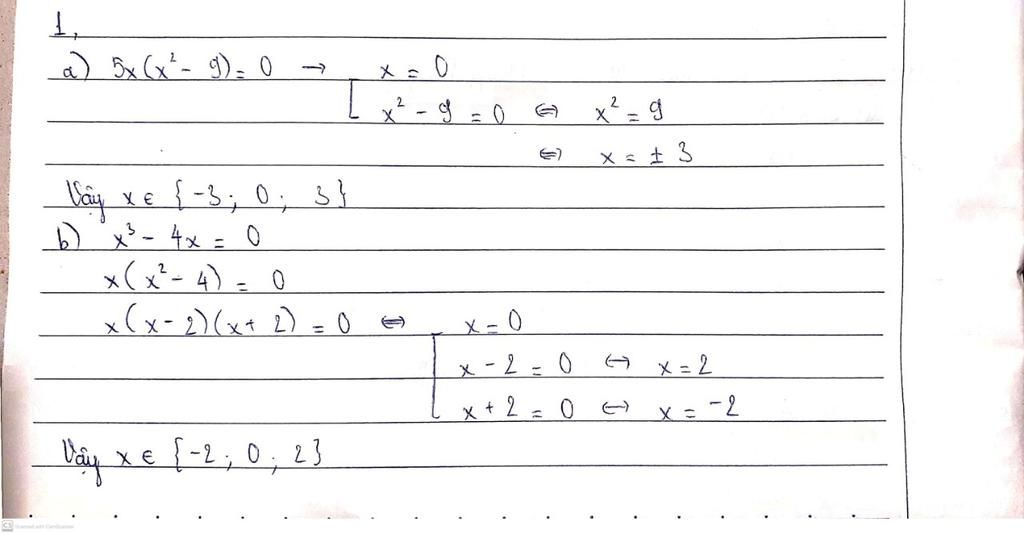 1,
a) 5x(x² - 9) = 0 → [ x = 0
x² - 9 = 0 ⇔ x² = 9
⇔ x = ± 3
Vậy x ∈ {-3; 0; 3}
b) x³ - 4x = 0
x(x² - 4) = 0
x(x - 2)(x + 2) = 0 ⇔ [ x = 0
x - 2 = 0 ⇔ x = 2
x + 2 = 0 ⇔ x = -2
Vậy x ∈ {-2; 0; 2}
CS Scanned with CamScanner